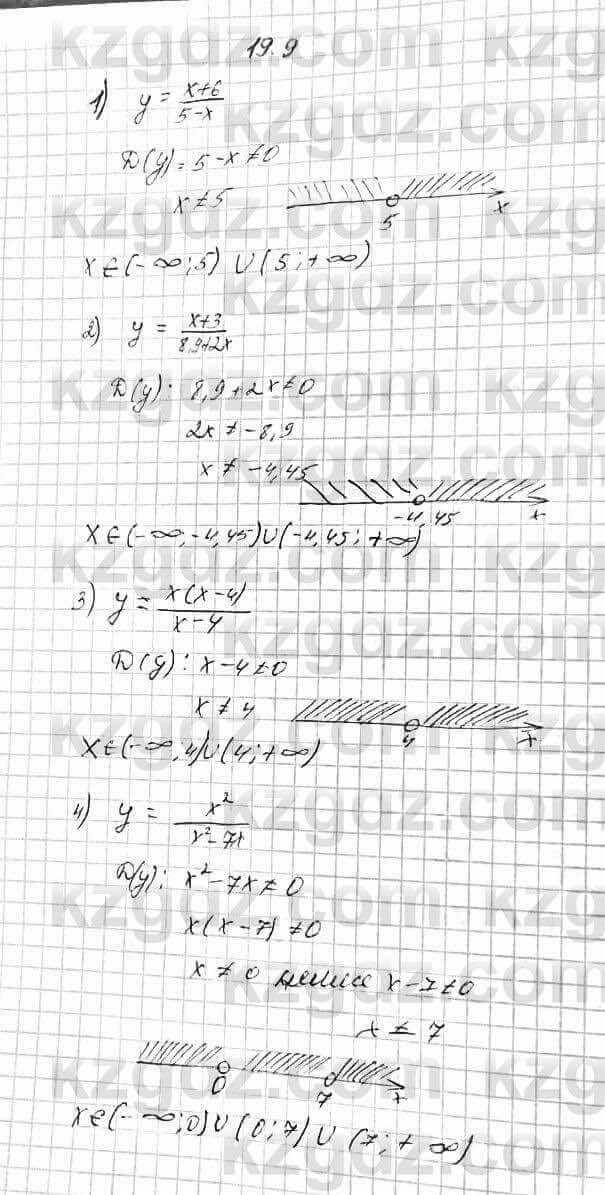 19.9
1) y = \frac{x+6}{5-x}
D(y) = 5-x≠0
x≠5
5 x
x∈(-∞;5) ∪ (5;+∞)
2) y = \frac{x+3}{8,9+2x}
D(y): 8,9+2x≠0
2x ≠ -8,9
x ≠ -4,45
-4,45 x
x∈(-∞,-4,45)∪(-4,45;+∞)
3) y = \frac{x(x-4)}{x-4}
D(y): x-4≠0
x ≠ 4
4 x
x∈(-∞,4)∪(4;+∞)
4) y = \frac{x²}{x²-7x}
D(y): x²-7x≠0
x(x-7) ≠0
x ≠ 0 немесе x-7≠0
x ≠ 7
0 7 x
x∈(-∞;0)∪(0;7)∪(7;+∞)
kzgdz.com